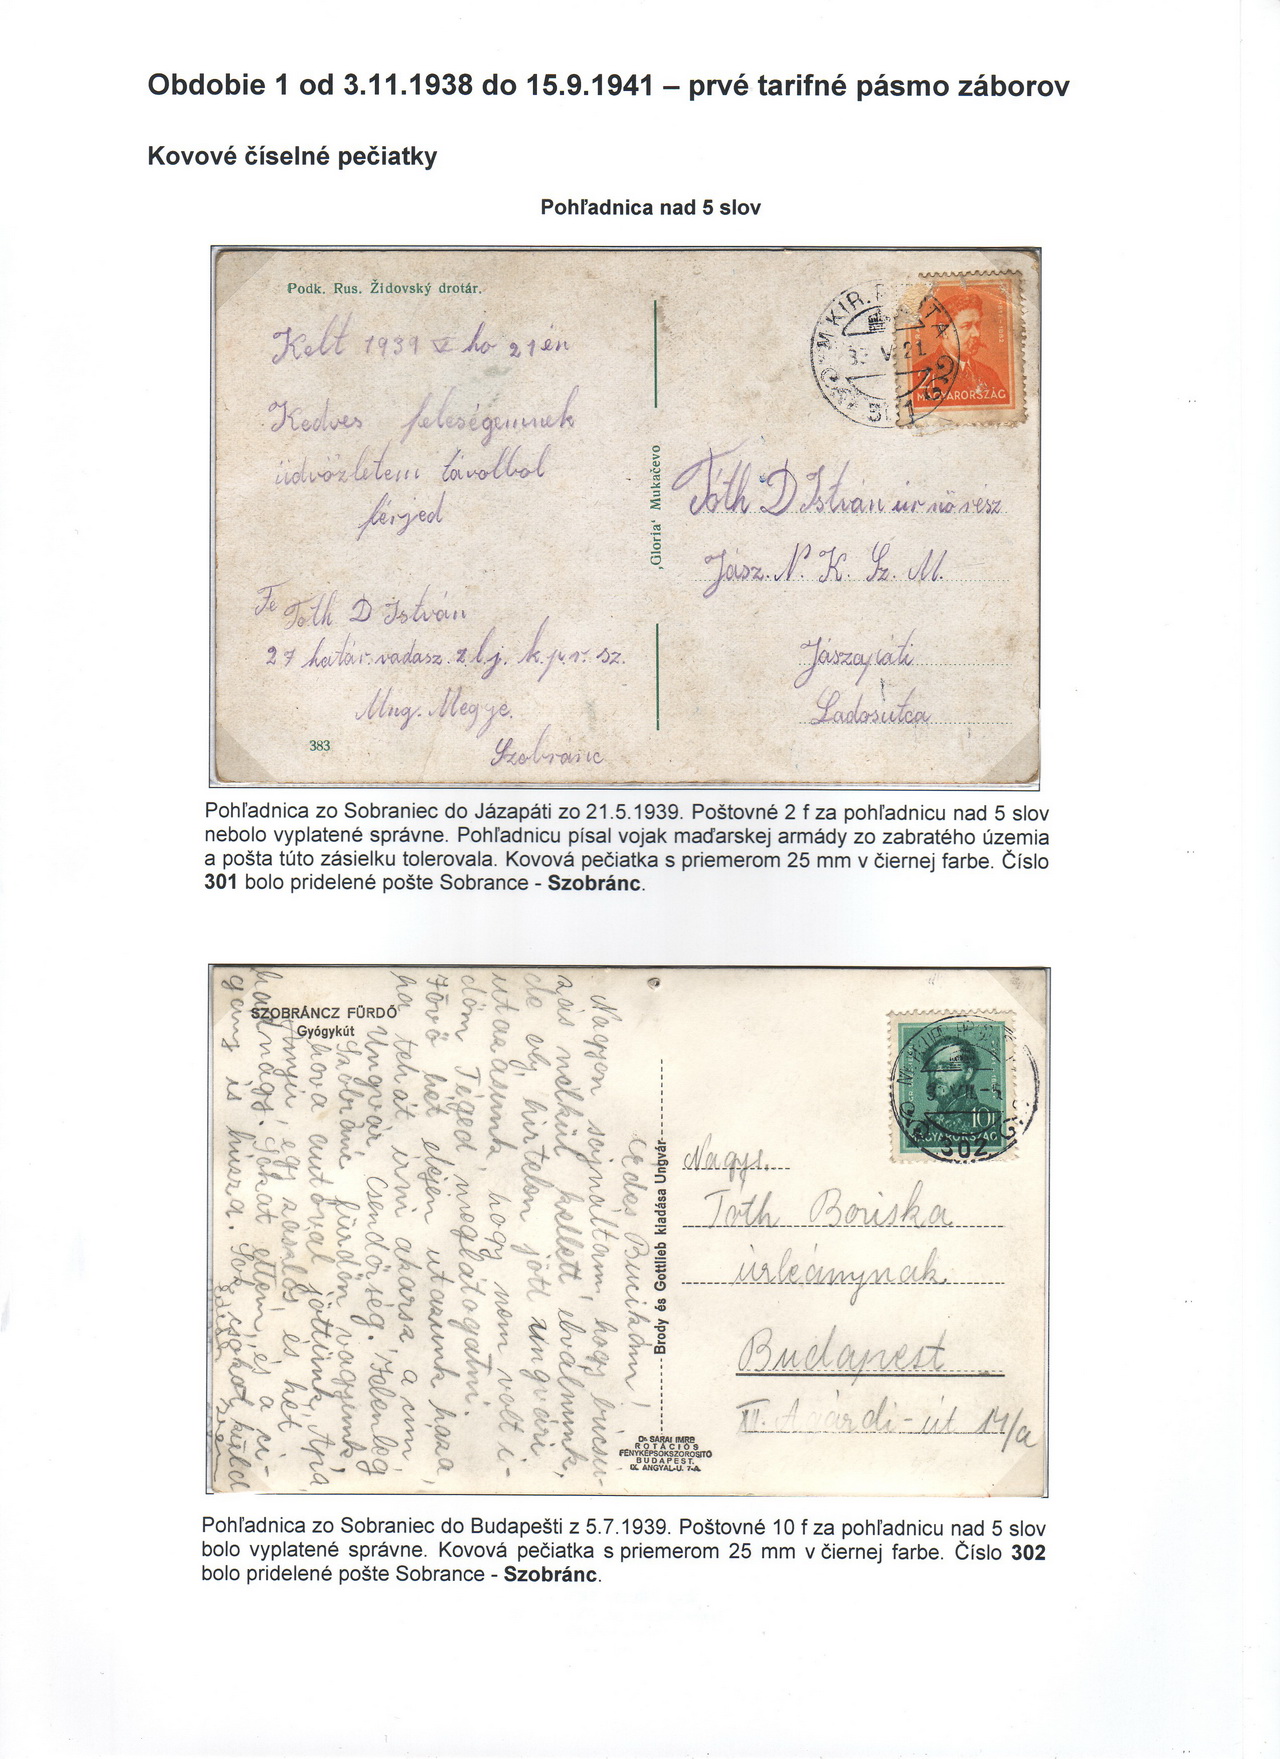 Obdobie 1 od 3.11.1938 do 15.9.1941 – prvé tarifné pásmo záborov
Kovové číselné pečiatky
Pohľadnica nad 5 slov
Podk. Rus. Židovský drotár.
Kelt 1939 V ho 21 én
Kedves feleségemnek
üdvözletem távolbol
férjed
Tóth D István
27 határvadasz. zlj. k.p.r. sz.
Ung. Megye.
Szobránc
383
„Gloria“ Mukačevo
M. KIR. POSTA
39 V 21
301
MAGYARORSZÁG
Tóth D István úr nö rész
Jász. N. K. Sz. M.
Jászapáti
Ladosutca
Pohľadnica zo Sobraniec do Jázapáti zo 21.5.1939. Poštovné 2 f za pohľadnicu nad 5 slov
nebolo vyplatené správne. Pohľadnicu písal vojak maďarskej armády zo zabratého územia
a pošta túto zásielku tolerovala. Kovová pečiatka s priemerom 25 mm v čiernej farbe. Číslo
301 bolo pridelené pošte Sobrance - Szobránc.
SZOBRÁNCZ FÜRDŐ
Gyógykút
Édes Bucikám!
Nagyon sajnáltam, hogy búcsu-
zás nélkül kellett elválnunk,
de oly hirtelen jött ungvári
utazásunk, hogy nem volt i-
dőm Téged meglátogatni.
Jövő hét elején utazunk haza,
ha tehát irni akarsz a cim
Ungvár csendőrség. Jelenleg
Szobránc fürdőn vagyunk,
hova autóval jöttünk, Apa
annyi, egy zászlós és két
hadnagy. Sokat ettem, és a ci-
gány is húzza. Sok csókot küld
Brody és Gottlieb kiadása Ungvár
Dr. SÁRAI IMRE
ROTÁCIÓS
FÉNYKÉPSOKSZOROSITÓ
BUDAPEST.
IX. ANGYAL-U. 7-A.
10f
MAGYARORSZÁG
302
Nagys.
Tóth Boriska
úrleánynak
Budapest
Pohľadnica zo Sobraniec do Budapešti z 5.7.1939. Poštovné 10 f za pohľadnicu nad 5 slov
bolo vyplatené správne. Kovová pečiatka s priemerom 25 mm v čiernej farbe. Číslo 302
bolo pridelené pošte Sobrance - Szobránc.